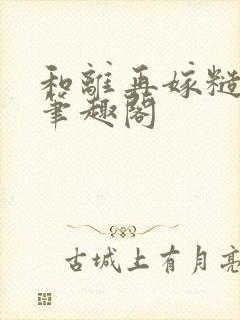 和離再嫁糙
筆趣閣
古城上有月亮